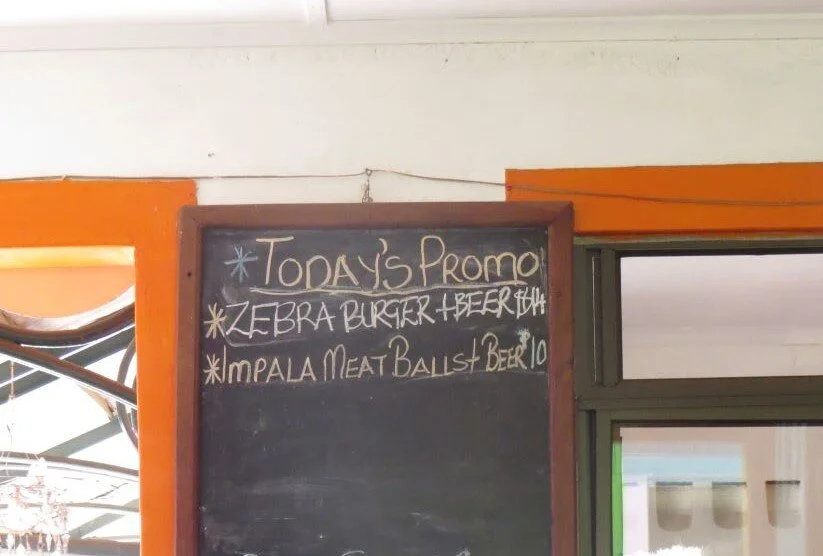 *TODAY'S PROMO
*ZEBRA BURGER + BEER $14
*IMPALA MEAT BALLS + BEER $10